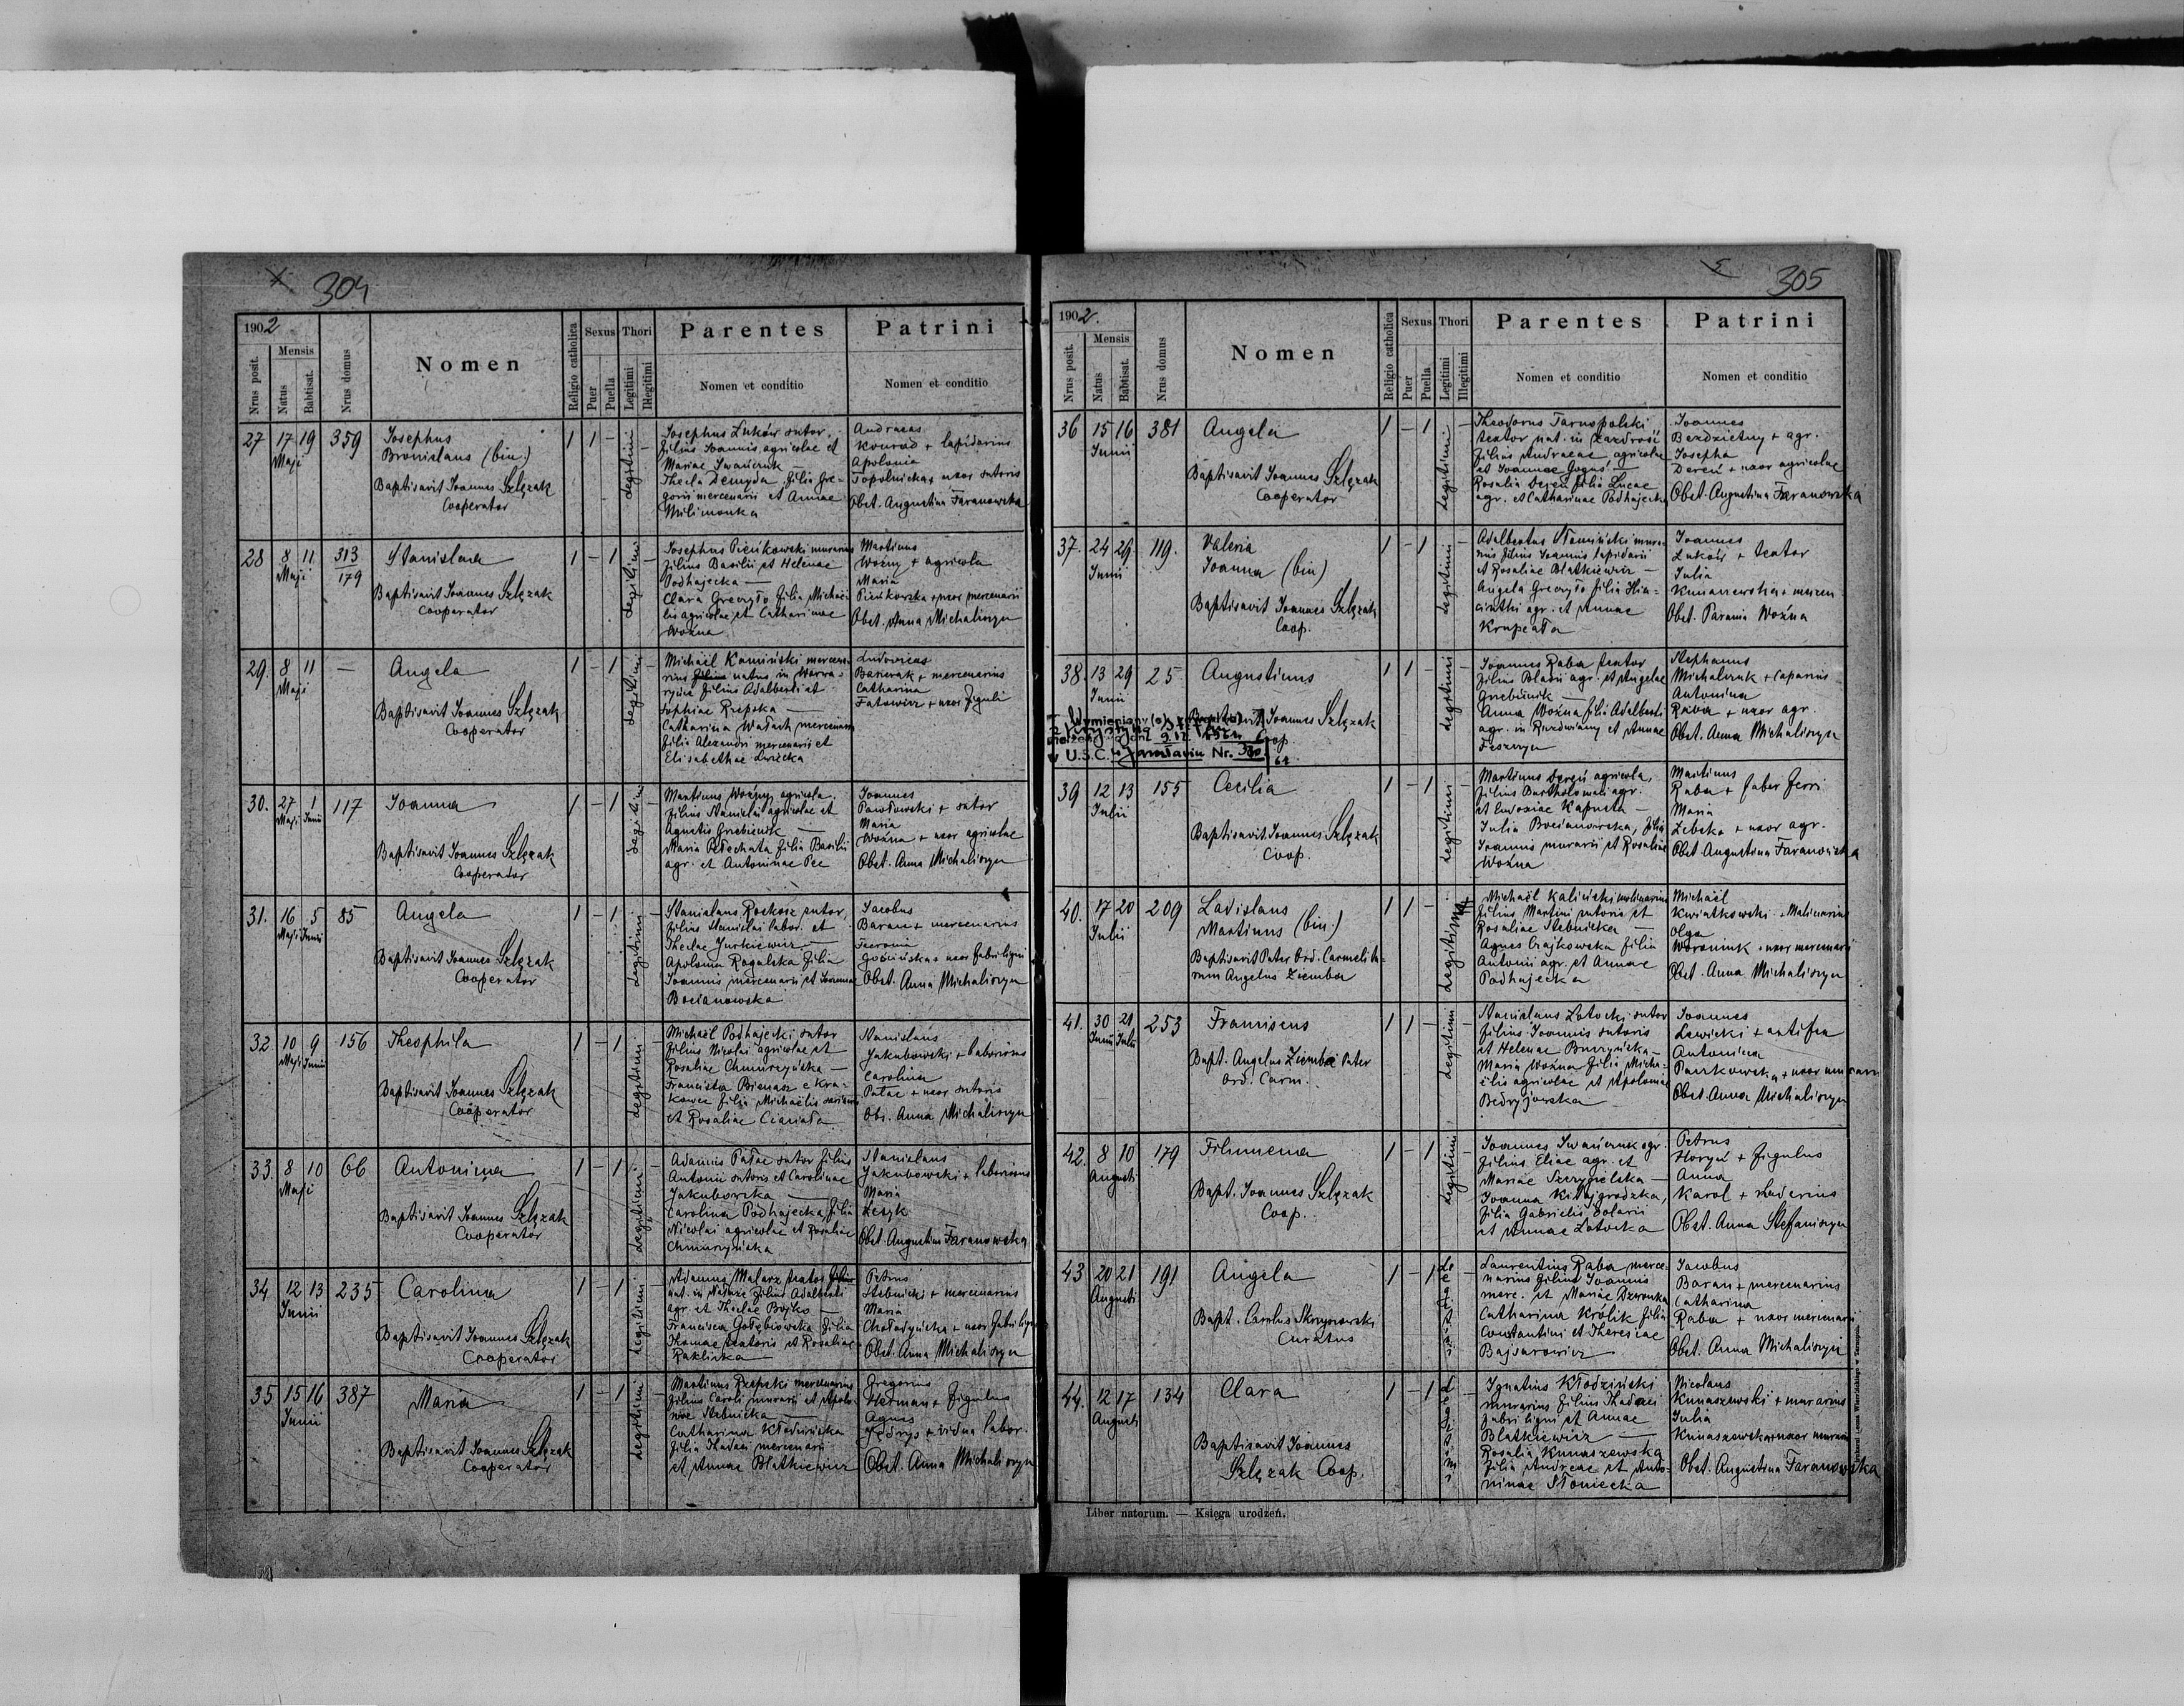 304
1902
Nrus posit.
Mensis
Natus
Babtisat.
Nrus domus
Nomen
Religio catholica
Sexus
Puer
Puella
Thori
Legitimi
Illegitimi
Parentes
Nomen et conditio
Patrini
Nomen et conditio
27 17 19 359
Maji
Josephus
Bronislaus (bin.)
Baptisavit Joannes Szlęzak
Cooperator
1 1 –
Legitimi
Josephus Luków sutor,
filius Joannis agricolae et
Mariae Iwańczuk
Thecla Demyda filia Gre-
gorii mercenarii et Annae
Andreas
Konrad + lapidarius
Apolonia
Topolnicka + uxor sutoris
Obst. Augustina Faranowska
28 8 11 313
Maji 179
Stanislava
Baptisavit Joannes Szlęzak
Cooperator
1 – 1
Legitimi
Josephus Pieńkowski murarius
filius Basilii et Helenae
Podhajecka —
Clara Greczyło filia Michaë-
lis agricolae et Catharinae
Woźna
Martinus
Woźny + agricola
Maria
Pieńkowska + uxor mercenarii
Obst. Anna Michaliszyn
29. 8 11 —
Maji
Angela
Baptisavit Joannes Szlęzak
Cooperator
1 – 1
Legitimi
Michaël Kamiński mercena-
rius natus in
filius Adalberti et
Sophiae Rzepska —
Catharina Wałach mercenaria
filia Alexandri mercenarii et
Elisabethae
Ludovicus
+ mercenarius
Catharina
Fatowicz + uxor figuli
30. 27 1 117
Maji Junii
Joanna
Baptisavit Joannes Szlęzak
Cooperator
1 – 1
Legitimi
Martinus Woźny agricola,
filius Stanislai agricolae et
Agnetis Grzebieniuk —
Maria Pełechata filia Basilii
agr. et Antoninae Pec
Joannes
Pawłowski + sutor
Maria
Woźna + uxor agricolae
Obst. Anna Michaliszyn
31. 16 5 85
Maji Junii
Angela
Baptisavit Joannes Szlęzak
Cooperator
1 – 1
Legitimi
Stanislaus Rockosz sutor,
filius Stanislai labor. et
Theclae Jurkiewicz —
Apolonia Rogalska filia
Joannis mercenarii et Joannae
Bocianowska
Jacobus
Baran + mercenarius
+ uxor fabri ligni
Obst. Anna Michaliszyn
32. 10 9 156
Maji Junii
Theophila
Baptisavit Joannes Szlęzak
Cooperator
1 – 1
Legitimi
Michaël Podhajecki sutor
filius Nicolai agricolae et
Rosaliae Chmurzyńska —
Francisca Biemasz e Kra-
kowec filia Michaëlis
et Rosaliae
Stanislaus
Jakubowski + laborius
Carolina
Pałac + uxor sutoris
Obs. Anna Michaliszyn
33. 8 10 66
Maji
Antonina
Baptisavit Joannes Szlęzak
Cooperator
1 – 1
Legitimi
Adamus Pałac sutor filius
Antonii sutoris et Carolinae
Jakubowska —
Carolina Podhajecka filia
Nicolai agricolae et Rosaliae
Chmurzyńska
Stanislaus
Jakubowski + laborius
Maria
Leszyk
Obst. Augustina Faranowska
34 12 13 235
Junii
Carolina
Baptisavit Joannes Szlęzak
Cooperator
1 – 1
Legitimi
Adamus Malarz textor
nat. in filius Adalberti
agr. et Theclae Bojko —
Francisca Gołębiowska filia
Thomae textoris et Rosaliae
Petrus
Stebnicki + mercenarius
Maria
Chołodyńska + uxor fabri ligni
Obst. Anna Michaliszyn
35 15 16 387
Junii
Maria
Baptisavit Joannes Szlęzak
Cooperator
1 – 1
Legitimi
Martinus Rzepski mercenarius
filius Caroli murarii et Apolo-
niae Stebnicka —
Catharina Kłodzińska
filia Thadaei mercenarii
et Annae Blatkiewicz
Gregorius
Herman + figulus
Agnes
Jędrys + vidua labor.
Obst. Anna Michaliszyn
305
1902.
Nrus posit.
Mensis
Natus
Babtisat.
Nrus domus
Nomen
Religio catholica
Sexus
Puer
Puella
Thori
Legitimi
Illegitimi
Parentes
Nomen et conditio
Patrini
Nomen et conditio
36 15 16 381
Junii
Angela
Baptisavit Joannes Szlęzak
Cooperator
1 – 1
Legitimi
Theodorus Tarnopolski
textor nat. in Zazdrość
filius Andreae agricolae
et Joannae Goguś —
Rosalia Dereń filia Lucae
agr. et Catharinae Podhajecka
Joannes
Bezdzietny + agr.
Josepha
Dereń + uxor agricolae
Obst. Augustina Faranowska
37. 24 29 119.
Junii
Valeria
Joanna (bin)
Baptisavit Joannes Szlęzak
Coop.
1 – 1
Legitimi
Adalbertus Słomiński mura-
rius filius Joannis lapidarii
et Rosaliae Blatkiewicz —
Angela Greczyło filia Hia-
cinthi agr. et Annae
Krupcała
Joannes
Luków + textor
Julia
Kunaszewska +
Obst. Parania Woźna
38. 13 29 25
Junii
Augustinus
Baptisavit Joannes Szlęzak
Coop.
Wymieniony(a)
dnia 9.12.
w U.S.C. w Jarosławiu Nr.
1 1 –
Legitimi
Joannes Raba textor
filius Blasii agr. et Angelae
Grzebieniuk —
Anna Woźna filia Adalberti
agr. in Ruzdwiany et Annae
Feszczyn
Stephanus
Michalczuk +
Antonina
Raba + uxor agr.
Obst. Anna Michaliszyn
39 12 13 155
Julii
Cecilia
Baptisavit Joannes Szlęzak
Coop.
1 – 1
Legitimi
Martinus Dereń agricola,
filius Bartholomaei agr.
et Eudoxiae Kapusta —
Julia Bocianowska, filia
Joannis murarii et Rosaliae
Woźna
Martinus
Raba + faber ferri
Maria
Zebska + uxor agr.
Obst. Augustina Faranowska
40. 17 20 209
Julii
Ladislaus
Martinus (bin.)
Baptisavit Pater Ord. Carmelita-
rum Angelus Ziemba
1 1 –
Legitimus
Michaël Kaliński molinarius
filius Martini sutoris et
Rosaliae Stebnicka —
Agnes Czajkowska filia
Antonii agr. et Annae
Podhajecka
Michaël
Kwiatkowski + Malinarius
Olga
Woroniuk + uxor mercenarii
Obst. Anna Michaliszyn
41. 30 21 253
Junii Julii
Franciscus
Bapt. Angelus Ziemba Pater
Ord. Carm.
1 1 –
Legitimi
Stanislaus Zatocki sutor
filius Joannis sutoris
et Helenae Burzyńska —
Maria Woźna filia Micha-
ëlis agricolae et Apoloniae
Bedryjowska
Joannes
Lewicki + artifex
Antonina
Paszkowska + uxor murarii
Obst. Anna Michaliszyn
42. 8 10 179
Augusti
Filumena
Bapt. Joannes Szlęzak
Coop.
1 – 1
Legitimi
Joannes Iwańczuk agr.
filius Eliae agr. et
Mariae Szczygielska —
Joanna Kitajgrodzka,
filia Gabrielis dolarii
et Annae Zatocka
Petrus
Horyń + figulus
Anna
Karol +
Obst. Anna Stefaniszyn
43 20 21 191
Augusti
Angela
Bapt. Carolus Skrzyszowski
Curatus
1 – 1
Legitimi
Laurentius Raba merce-
narius filius Joannis
merc. et Mariae
Catharina Królik filia
Constantini et Theresiae
Bajsarowicz
Jacobus
Baran + mercenarius
Catharina
Raba + uxor mercenarii
Obst. Anna Michaliszyn
44. 12 17 134
Augusti
Clara
Baptisavit Joannes
Szlęzak Coop.
1 – 1
Legitimi
Ignatius Kłodziński
murarius filius Thadaei
fabri ligni et Annae
Blatkiewicz —
Rosalia Kunaszewska
filia Andreae et Anto-
ninae Słoniecka
Nicolaus
Kunaszewski + murarius
Julia
Kunaszewska + uxor murarii
Obst. Augustina Faranowska
Liber natorum. — Księga urodzeń.